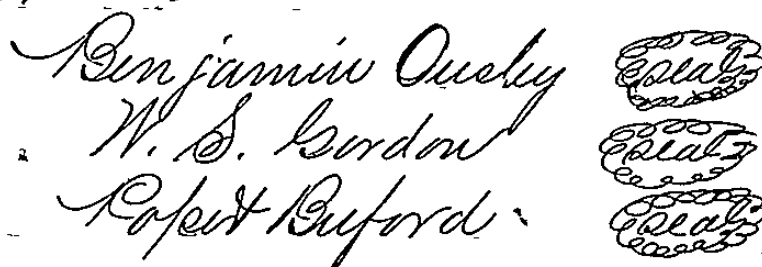 Benjamin Ousley (Seal)
W. S. Gordon (Seal)
Robert Buford. (Seal)